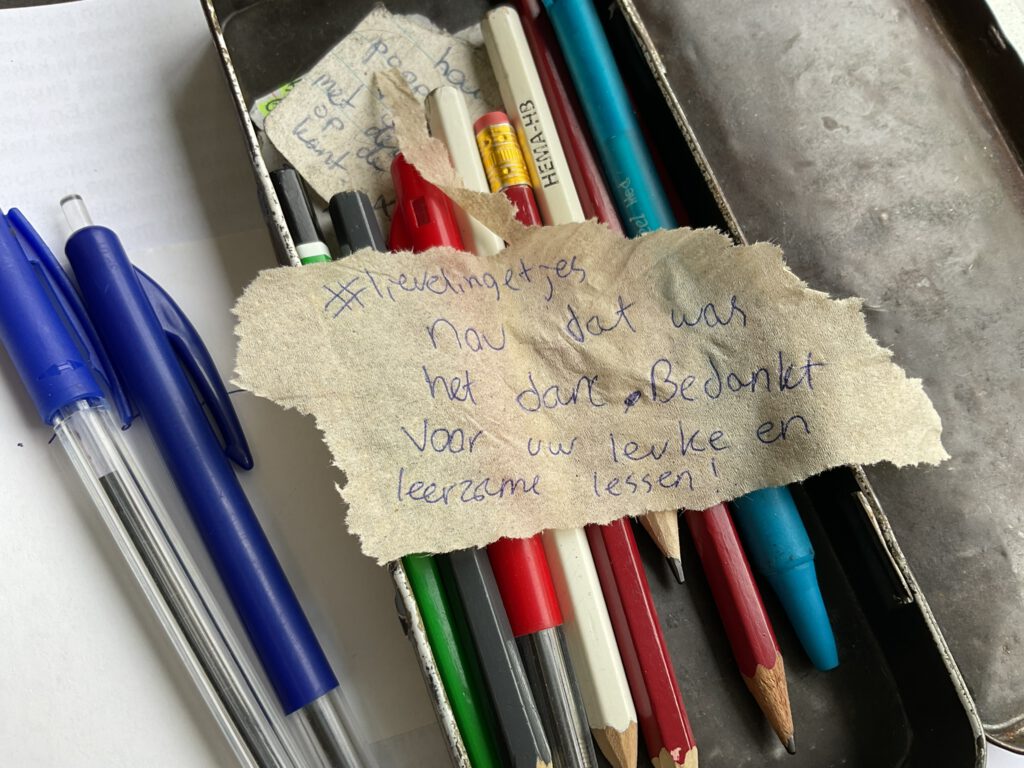 hou
papa
met
op de
kant de
4
HEMA-HB
#lievelingetjes
nou dat was
het dan. Bedankt
voor uw leuke en
leerzame lessen!